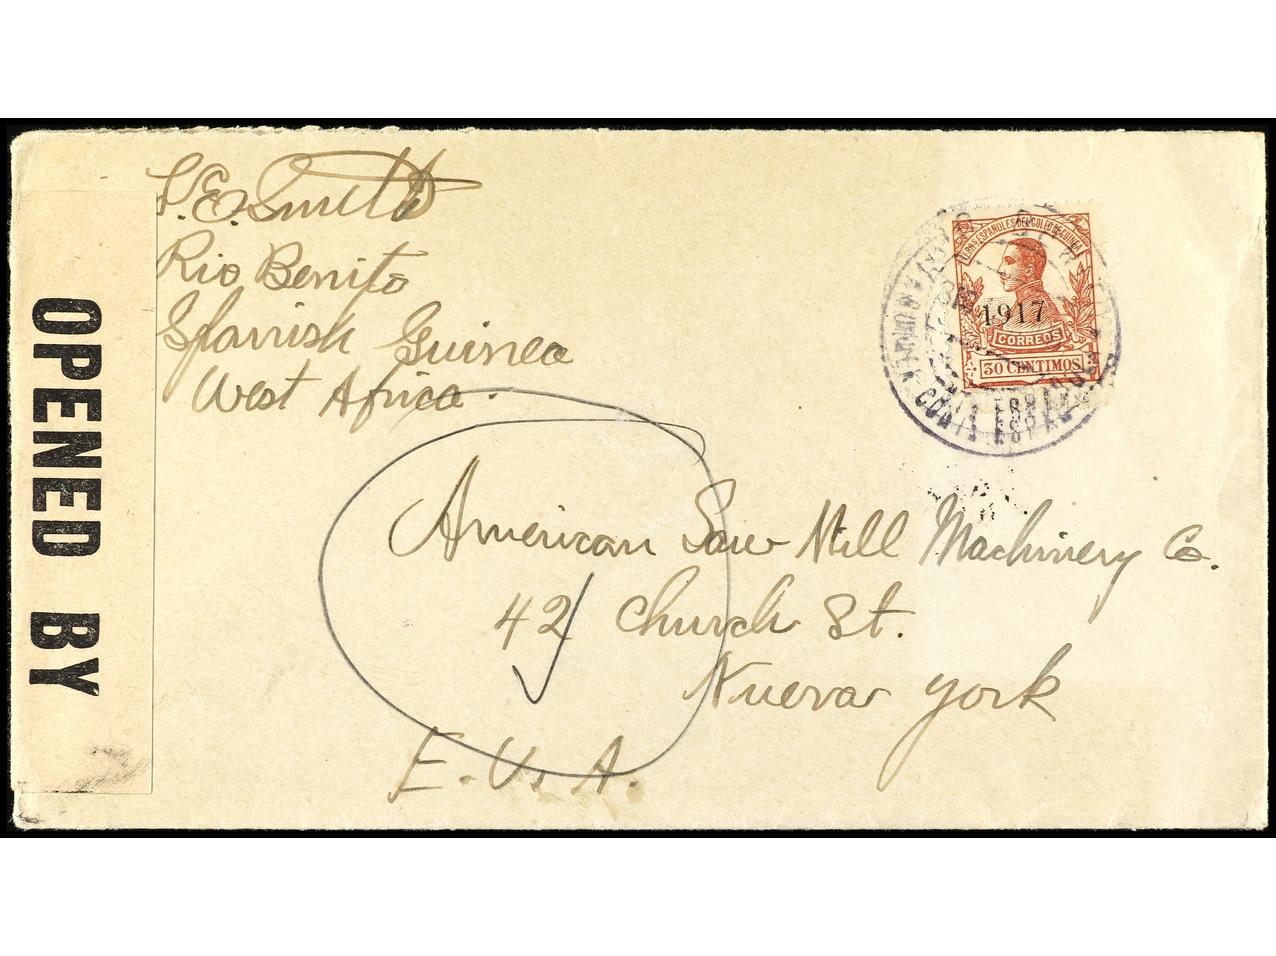 OPENED BY
E. Smith
Rio Benito
Spanish Guinea
West Africa.
TERRS ESPAÑOLES DEL GOLFO DE GUINEA
1917
CORREOS
30 CENTIMOS
American Saw Mill Machinery Co.
42 Church St.
Nueva York
E.U.A.